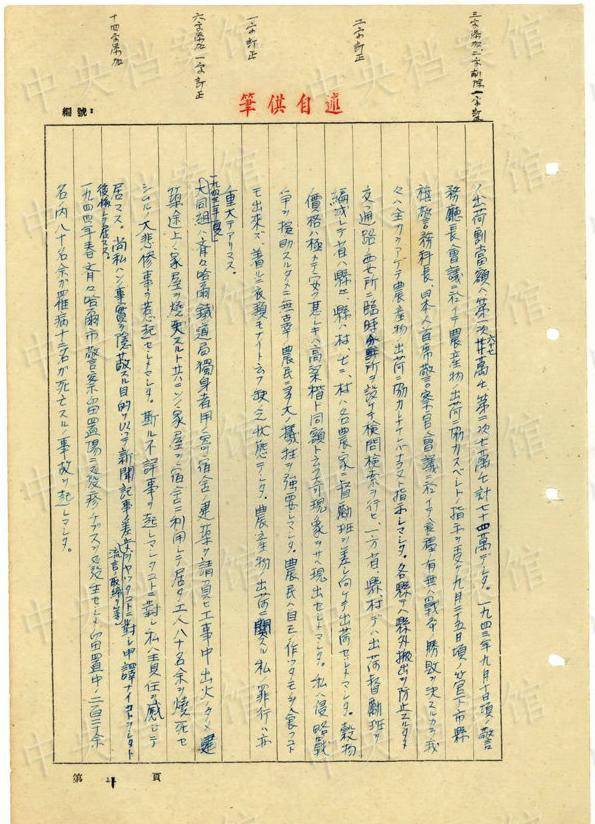 三字添加、二字削除 一字訂正
二字訂正
一字訂正
六字添加 一字訂正
十四字添加
筆供自述
編號:
ノ出荷割当額ハ第一次六十七萬屯 第二次七萬屯 計七十四萬屯デシタ。一九四三年九月十日項ノ警
務庁長会議ニ於イテ農産物出荷ニ協力スベシトノ指示ヲ受ケ九月二十五日項ノ管下市縣
旗警務科長、日本人首席警察官会議ニ於イテ食糧ノ有無ハ戦争ノ勝敗ヲ決スルカラ我
々ハ全力ヲアゲテ農産物出荷ニ協力シナケレバナラヌト指示シマシタ。各縣デハ縣外搬出ヲ防止スルタメ
交通路ノ要所ニ臨時分駐所ヲ設ケテ検問検索ヲ行ヒ、一方省縣村デハ出荷督励班ヲ
編成シテ省ハ縣ニ、縣ハ村ニ、村ハ各農家ニ督励班ヲ差シ向ケテ出荷セシメマシタ。穀物
價格ハ極メテ安ク甚シキハ高粱稭ト同額トユフ奇現象ヲサヘ現出セシメマシタ。私ハ侵略戦
争ヲ援助スルタメニ無辜ノ農民ニ多大ノ犠牲ヲ強要シマシタ。農民ハ自己ノ作ツタモノモ食フコト
モ出来ズ着ルニ衣類モナイトユフ缺乏状態デシタ。農産物出荷ニ関スル私ノ罪行ハ亦
重大デアリマス。
一九四三年度ニ
大同組ハ斉々哈爾鉄道局獨身者用ノ宿舎ノ建築ヲ請負ヒ工事中出火シタメ建
築途上ノ家屋ヲ焼失スルト共ニコノ家屋ヲ宿舎ニ利用シテ居タ工人八十名余ヲ焼死セ
シムルノ大悲惨事ヲ惹起セシメマシタ。斯ル不詳事ヲ起シマシタコトニ対シ私ハ責任ヲ感ジテ
居マス。尚私ハコノ事実ヲ隠蔽スル目的ヲ以テ新聞記事ノ差止ヲヤツタコトニ対シ申訳ナイコトヲシタト
流言ノ取締ヲ
後悔シテ居マス。
一九四四年春斉々哈爾市警察留置場ニ発疹チフスヲ発生セシメ留置中ノ二百二十余
名ノ内八十名余ガ罹病十二名ガ死亡スルノ事故ヲ起シマシタ。
第 21 頁
中央档案馆